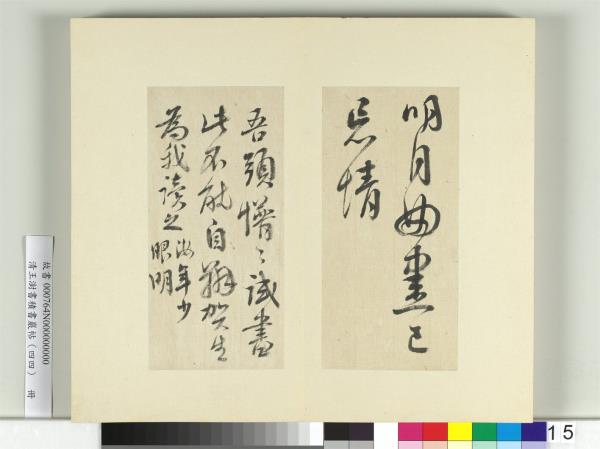 明月曲盡已
忘情
吾頭懵〻試書
此不能自辨賀生
為我讀之汝年少
眼明
故書 000764N000000000
清王澍書積書巖帖（四四） 冊
15